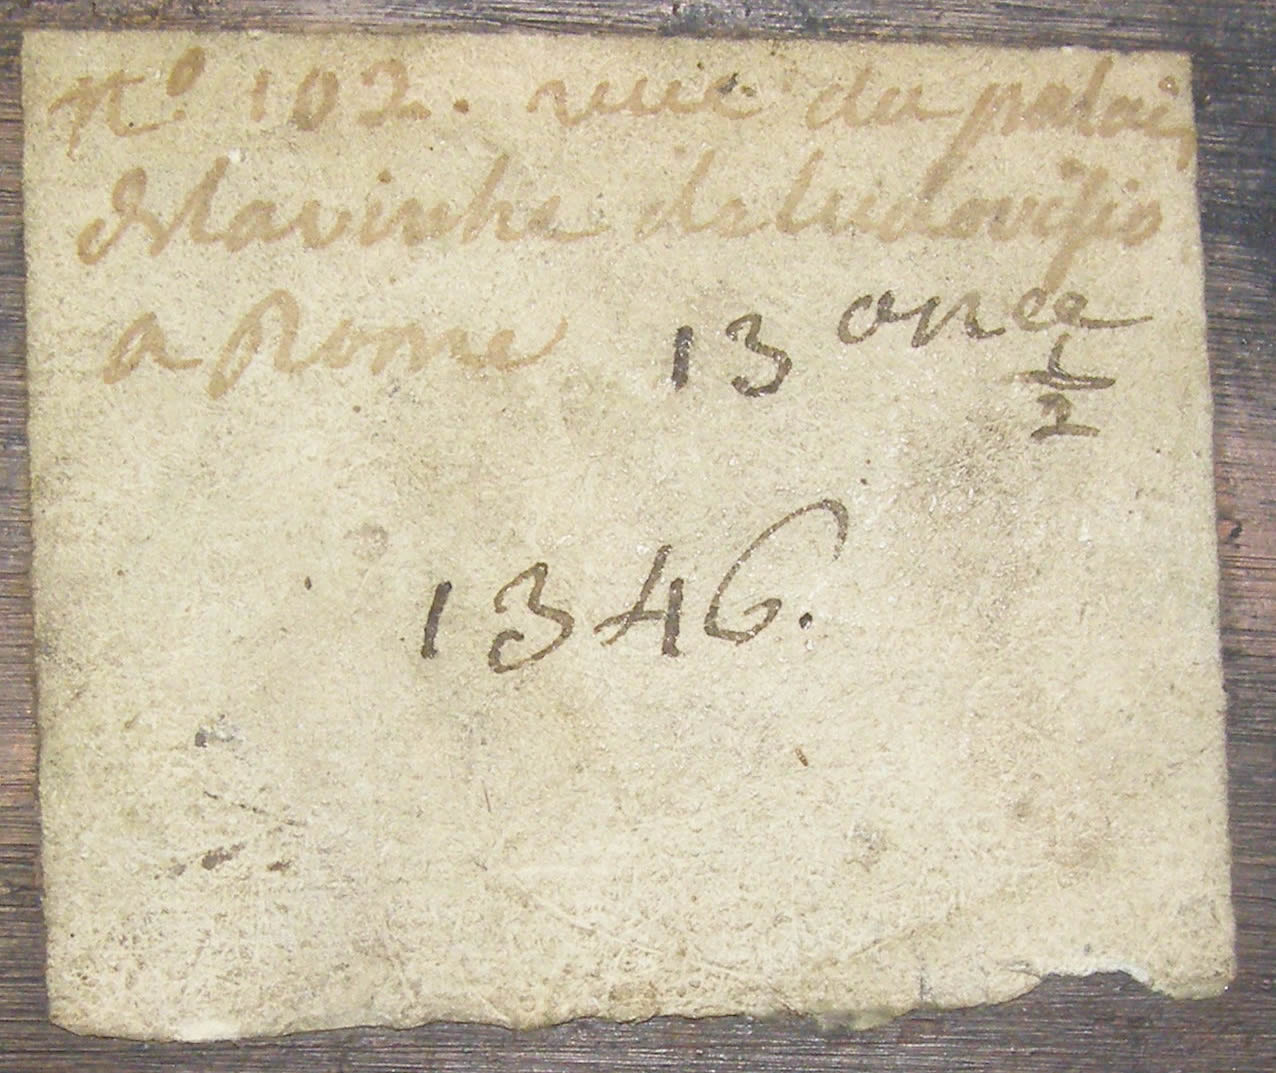 N.º 102. veue du palais
De la vinke de ludovizio
a Rome 13 once 1/2
1346.